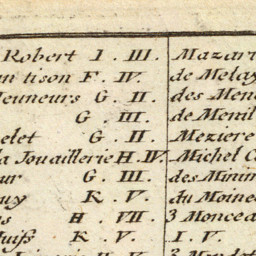 Robert I. III. Mazar
tison F. IV. de Melay
Jeuneurs G. II. des Men
G. III. de Menil
elet G. II. Meziere
la Jouaillerie H. IV. Michel C
ur G. III. des Minim
uy K. V. du Moine
s H. VII. 3 Moncea
Juifs K. V. I. V.